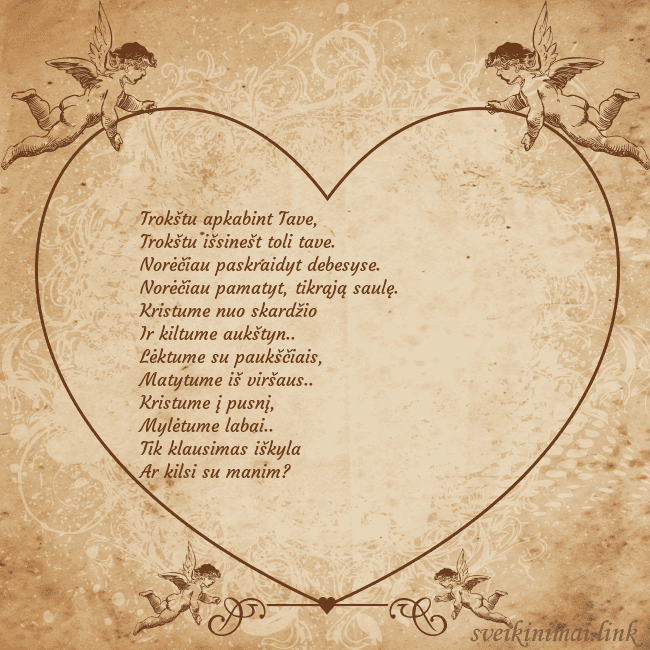 Trokštu apkabint Tave,
Trokštu išsinešt toli tave.
Norėčiau paskraidyt debesyse.
Norėčiau pamatyt, tikrąją saulę.
Kristume nuo skardžio
Ir kiltume aukštyn..
Lėktume su paukščiais,
Matytume iš viršaus..
Kristume į pusnį,
Mylėtume labai..
Tik klausimas iškyla
Ar kilsi su manim?
sveikinimai.link